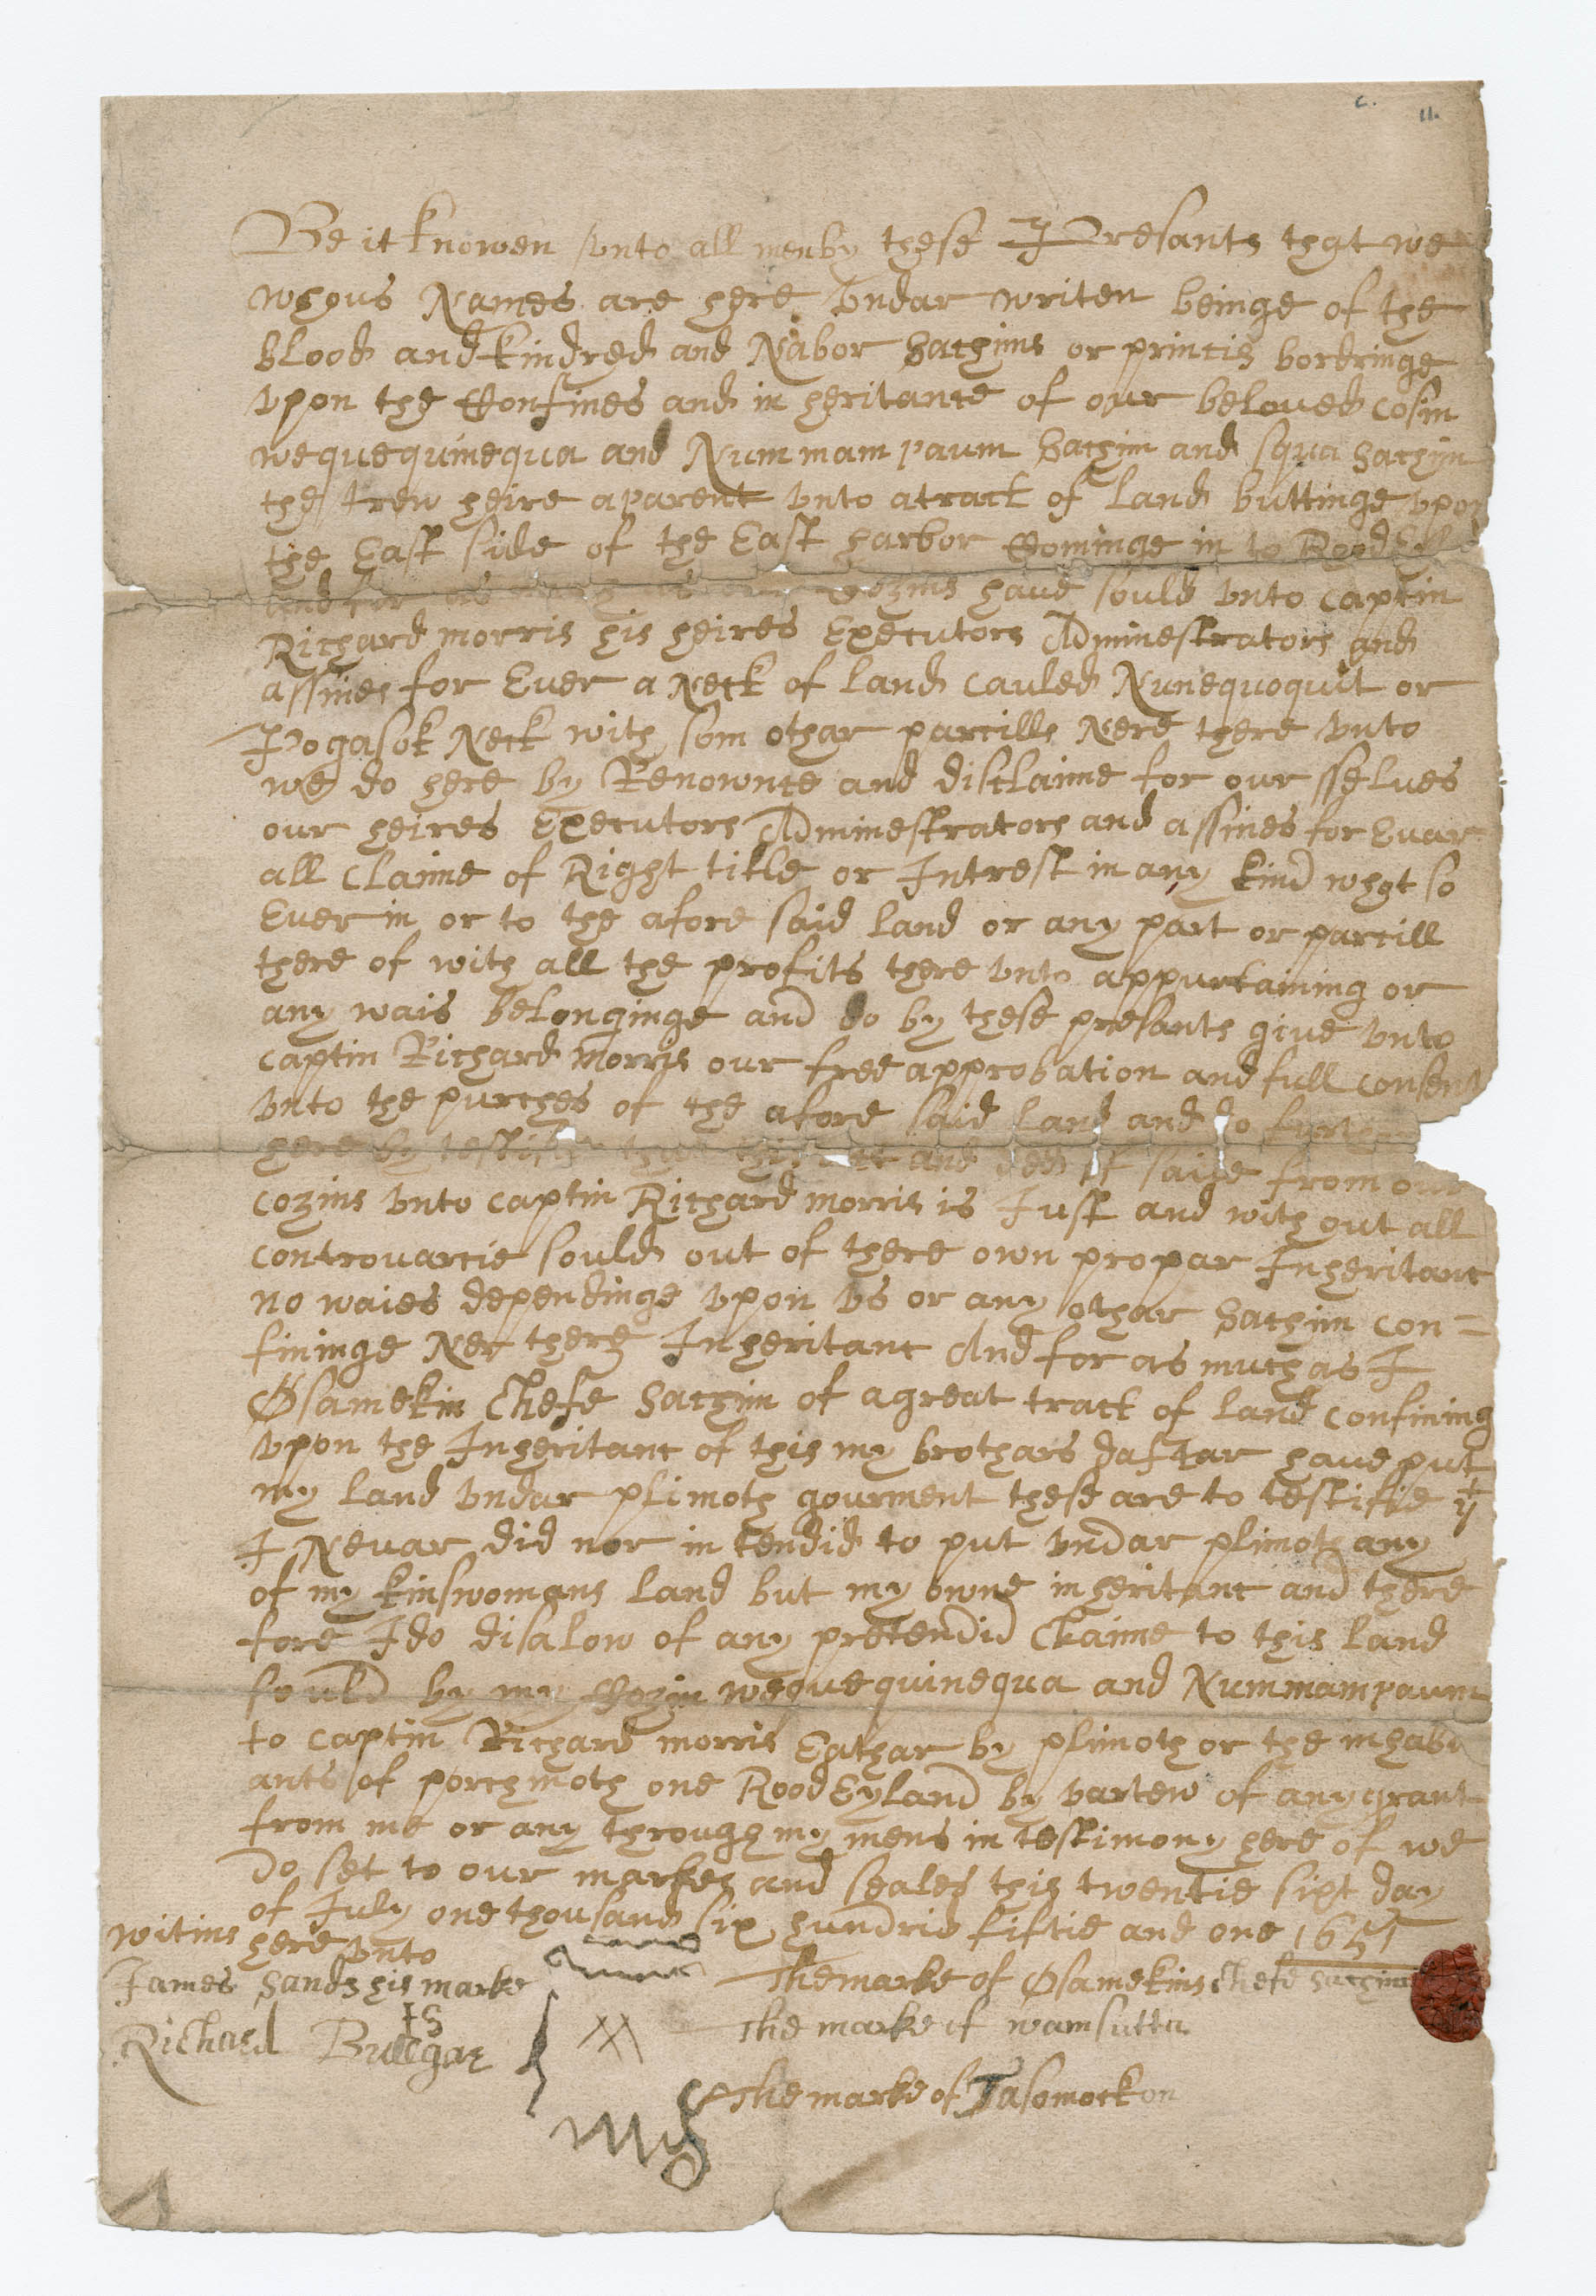 c. 11.
Be it knowen vnto all men by these Presants that we
whous Names are here vndar writen beinge of the
blood and kindred and Nabor Sachims or princis bordringe
vpon the Confines and in heritance of our beloved cosin
wequequinequa and Nummampaum Sachim and squa Sachim
the trew heire aparent vnto a tract of land buttinge vpon
the East side of the East harbor Cominge in to Rood
and for as our Cozins have sould vnto captin
Richard morris his heires Executors Adminestrators and
assines for Ever a Neck of land cauled Nunequoquit or
Pogasok Neck with som othar parcills Nere there vnto
we do here by Renownce and disclaime for our sselves
our heires Executors Adminestrators and assines for Evar
all Claime of Right title or Intrest in any kind what so
Ever in or to the afore said land or any part or parcill
there of with all the profits there vnto appurtaining or
any wais belonginge and do by these presants give vnto
captin Richard Morris our free approbation and full consent
vnto the purches of the afore said land and do
here by testifie that this and of saile from our
cozins vnto captin Richard morris is Just and with out all
controvarcie sould out of there own propar Inheritanc
no waies dependinge vpon vs or any othar Sachim con=
fininge Ner there Inheritanc And for as much as I
Osamekin Chefe Sachim of a great tract of land confining
vpon the Inheritanc of this my brothars daftar have put
my land vndar plimoth gourment these are to testifie yt
I Nevar did nor in tendid to put vndar plimoth any
of my kinswomans land but my owne inheritanc and there
fore I do disalow of any pretendid Claime to this land
sould by my Cozin wequequinequa and Nummampaum
to captin Richard morris Eathar by plimoth or the inhabi
ants of porchmoth one Rood Eyland by vartew of any grant
from me or any through my mens in testimony here of we
do set to our markes and seales this twentie sixt day
of July one thousand six hundrid fiftie and one 1651
witins here vnto
James Sands his marke
IS
Richard Bullgar
The marke of Osamekins Chefe Sachim
The marke of wamsutta
The marke of Tasomockon